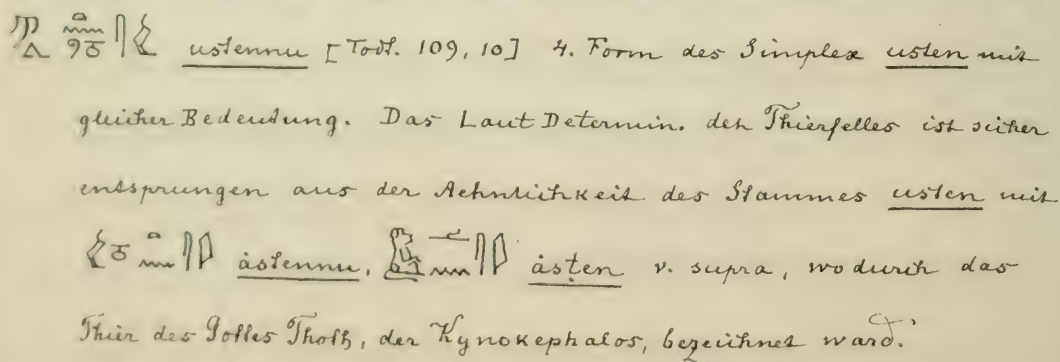 ustennu [Todt. 109, 10] 4. Form des Simplex usten mit
gleicher Bedeutung. Das Laut Determin. des Thierfelles ist sicher
entsprungen aus der Aehnlichkeit des Stammes usten mit
àstennu, àsṭen v. supra, wodurch das
Thier des Gottes Thoth, der Kynokephalos, bezeichnet ward.